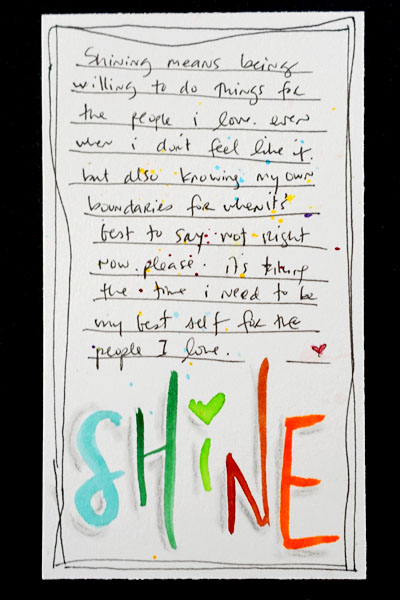 Shining means being
willing to do things for
the people i love. even
when i don't feel like it.
but also knowing my own
boundaries for when it's
best to say: not right
now. please. it's taking
the time i need to be
my best self for the
people I love.
SHiNE